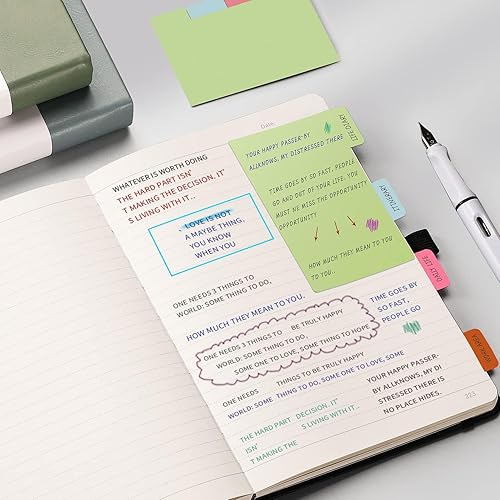 Date.
WHATEVER IS WORTH DOING
THE HARD PART ISN'
T MAKING THE DECISION, IT'
S LIVING WITH IT...
LOVE IS NOT
A MAYBE THING,
YOU KNOW
WHEN YOU
ONE NEEDS 3 THINGS TO
WORLD: SOME THING TO DO,
YOUR HAPPY PASSER-BY
ALLKNOWS, MY DISTRESSED THERE
TIME GOES BY SO FAST, PEOPLE
GO AND OUT OF YOUR LIFE. YOU
MUST NE MISS THE OPPORTUNITY
OPPORTUNITY
HOW MUCH THEY MEAN TO YOU
TO YOU..
LIFE DIARY
ITINERARY
DAILY LIFE
WORK AREA
HOW MUCH THEY MEAN TO YOU.
ONE NEEDS 3 THINGS TO BE TRULY HAPPY
WORLD: SOME THING TO DO,
SOME ONE TO LOVE, SOME THING TO HOPE
TIME GOES BY
SO FAST,
PEOPLE GO
ONE NEEDS THINGS TO BE TRULY HAPPY
WORLD: SOME THING TO DO, SOME ONE TO LOVE, SOME
THE HARD PART DECISION, IT'
ISN' S LIVING WITH IT...
T MAKING THE
YOUR HAPPY PASSER-
BY ALLKNOWS, MY DI
STRESSED THERE IS
NO PLACE HIDES.
223